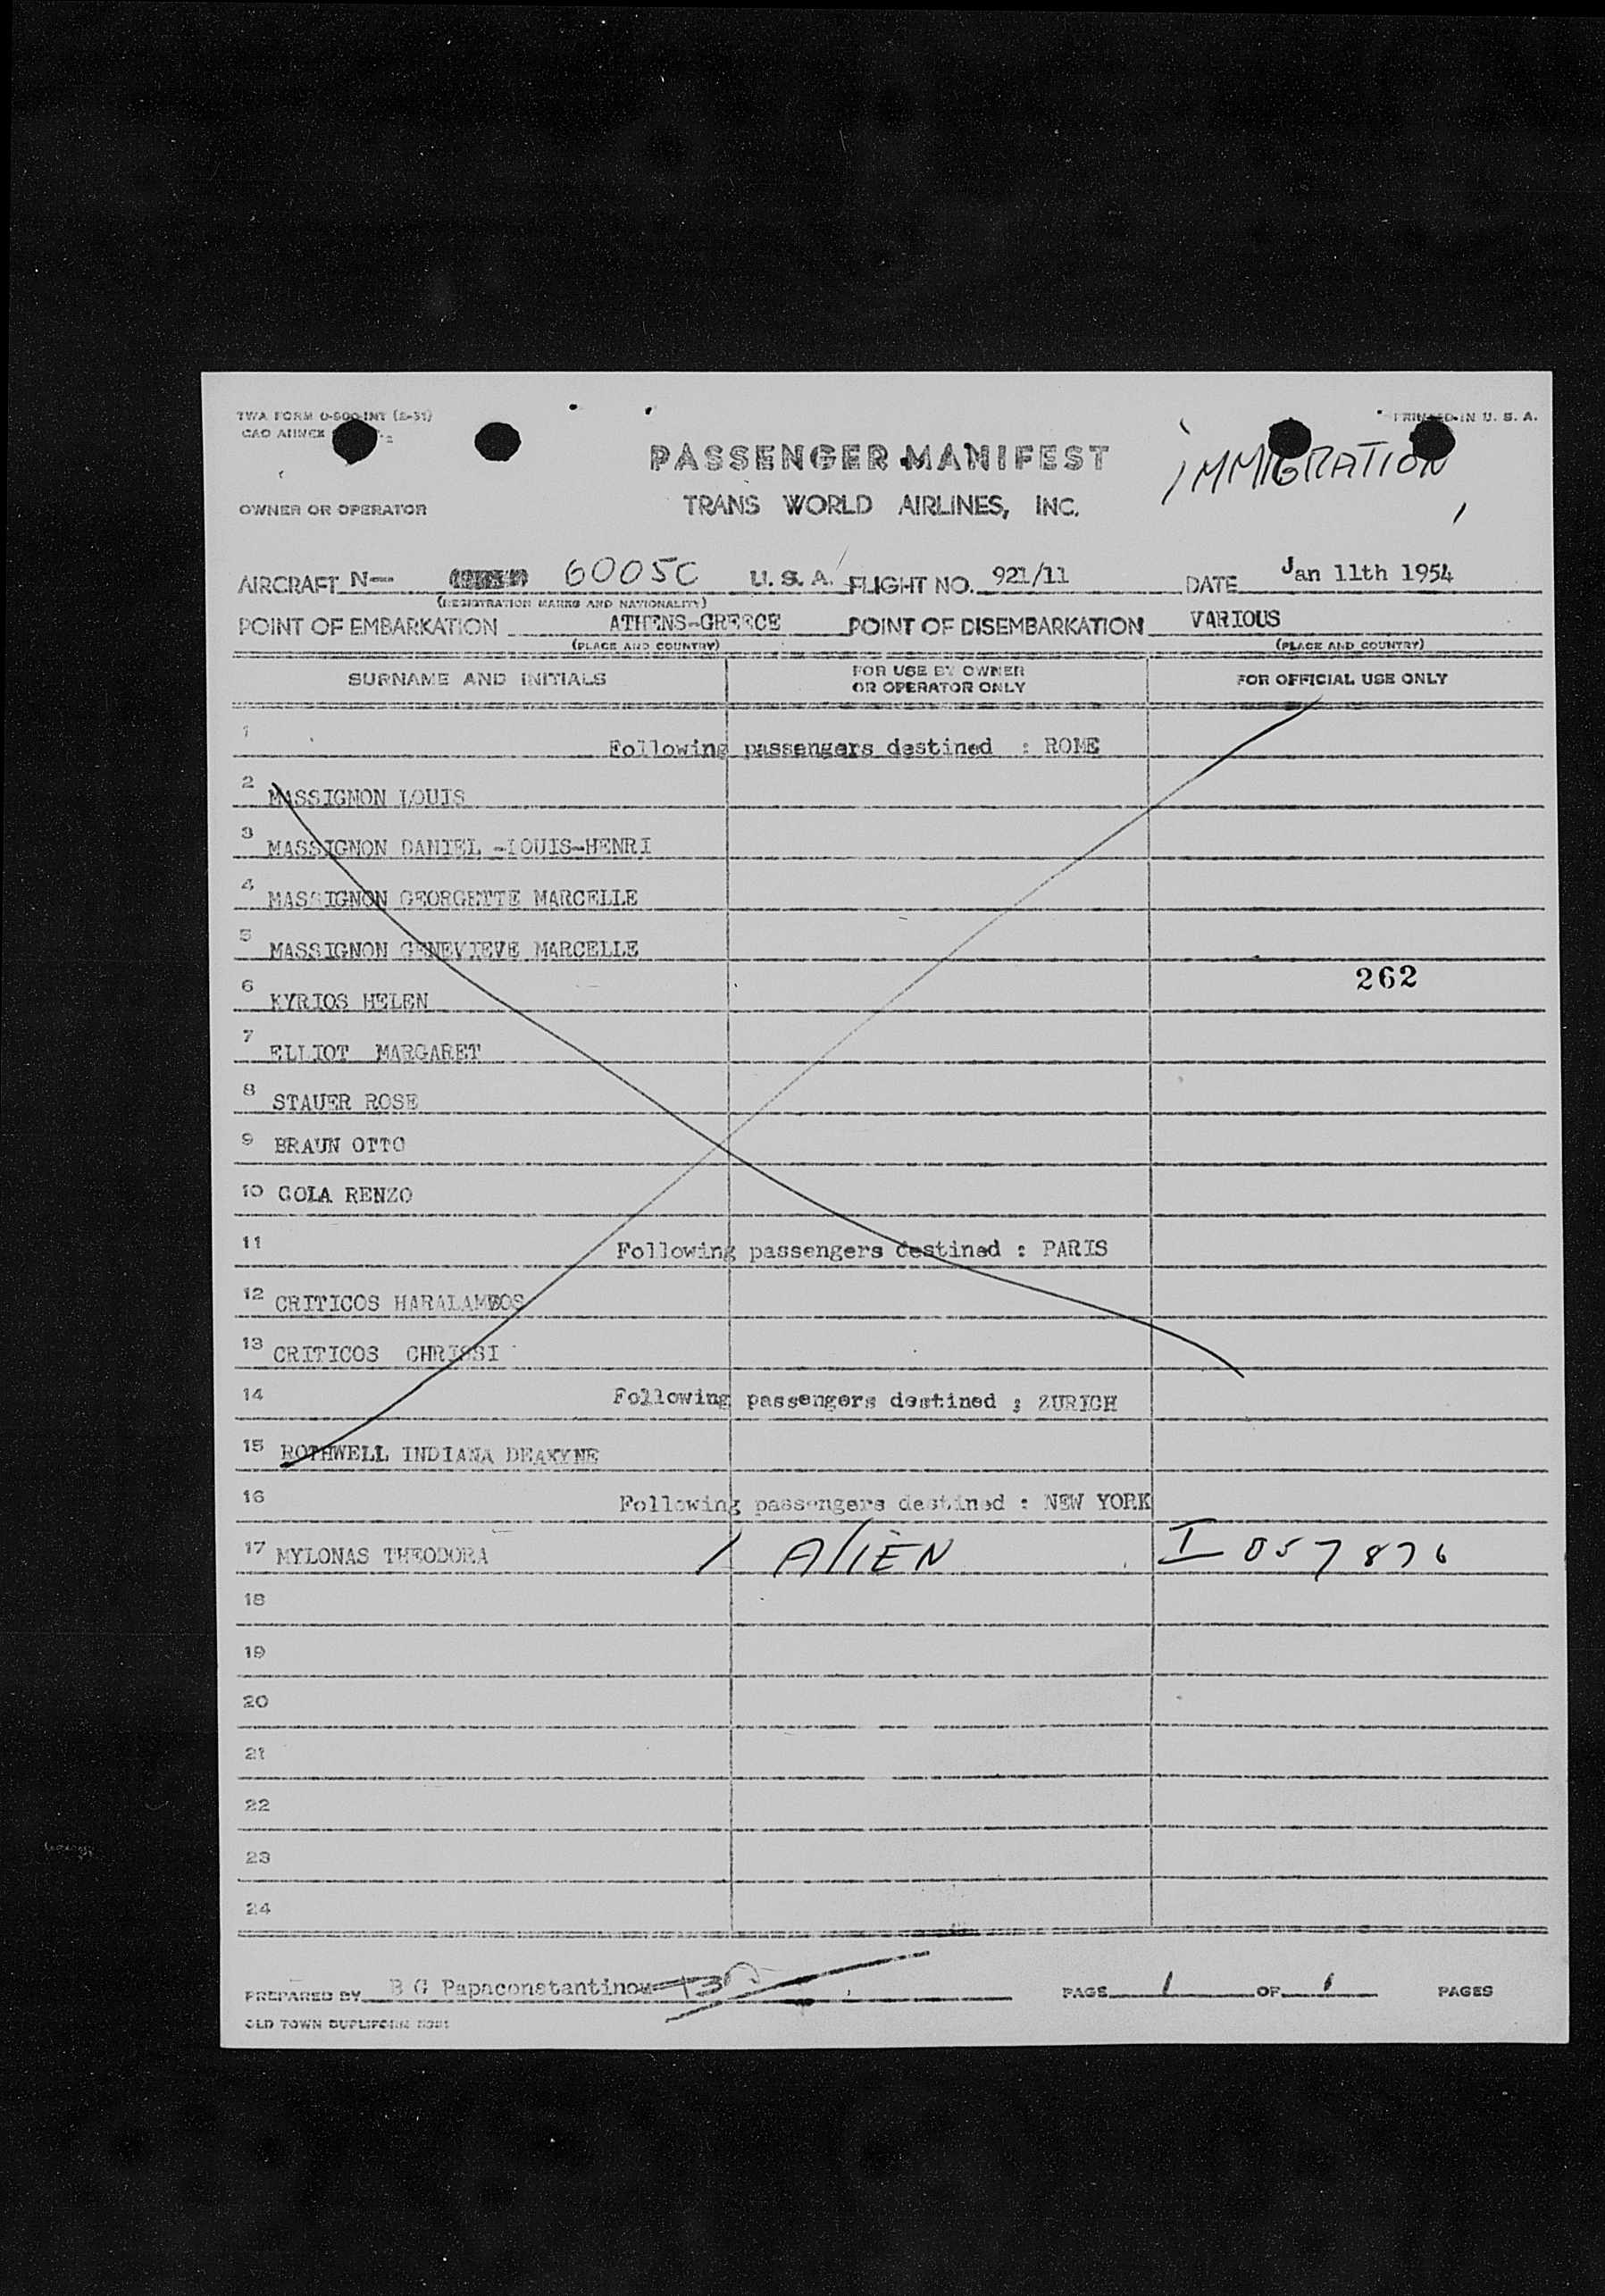 TWA FORM O-800-INT (2-51)
PRINTED IN U. S. A.
CAO ANNEX
PASSENGER MANIFEST
IMMIGRATION
OWNER OR OPERATOR
TRANS WORLD AIRLINES, INC.
AIRCRAFT N- 6005C U. S. A. FLIGHT NO. 921/11 DATE Jan 11th 1954
(REGISTRATION MARKS AND NATIONALITY)
POINT OF EMBARKATION ATHENS-GREECE POINT OF DISEMBARKATION VARIOUS
(PLACE AND COUNTRY) (PLACE AND COUNTRY)
SURNAME AND INITIALS FOR USE BY OWNER OR OPERATOR ONLY FOR OFFICIAL USE ONLY
1 Following passengers destined : ROME
2 MASSIGNON LOUIS
3 MASSIGNON DANIEL -LOUIS-HENRI
4 MASSIGNON GEORGETTE MARCELLE
5 MASSIGNON GENEVIEVE MARCELLE
262
6 KYRIOS HELEN
7 ELLIOT MARGARET
8 STAUER ROSE
9 BRAUN OTTO
10 COLA RENZO
11 Following passengers destined : PARIS
12 CRITICOS HARALAMBOS
13 CRITICOS CHRISSI
14 Following passengers destined ; ZURICH
15 ROTHWELL INDIANA DEAKYNE
16 Following passengers destined : NEW YORK
17 MYLONAS THEODORA 1 ALIEN I 057876
18
19
20
21
22
23
24
PREPARED BY B G Papaconstantinou PAGE 1 OF 1 PAGES
OLD TOWN DUPLIFORM